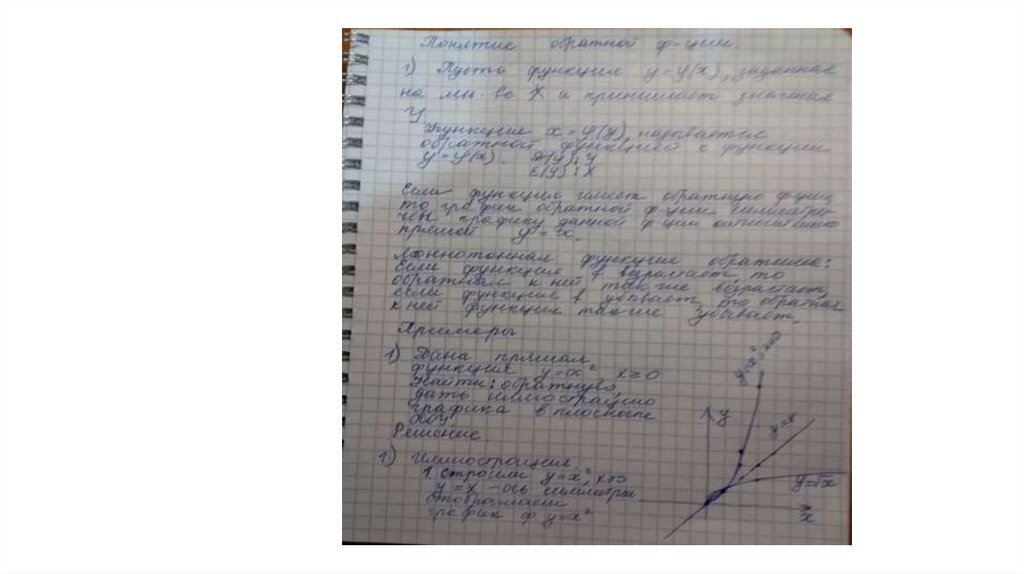 Понятие обратной ф-ции.
1) Пусть функция y=φ(x), заданная
на мн-ве X и принимает значения
Y.
Функция x=φ(y) называется
обратной функцией к функции
y=φ(x). D(y): Y
E(y): X
Если функция имеет обратную ф-цию,
то график обратной ф-ции симметри-
чен графику данной ф-ции относительно
прямой y=x.
Монотонная функция обратима:
Если функция f возрастает, то
обратная к ней также возрастает,
если функция f убывает, то обратная
к ней функция также убывает.
Примеры.
1) Дана прямая
функция y=x² x≥0
Найти: обратную
дать иллюстрацию
графика в плоскости
XOY
Решение
1) Иллюстрация.
1. строим y=x², x≥0
y=x - ось симметрии
отображаем
график ф y=x²
y=x², x≥0
y
y=x
y=√x
x